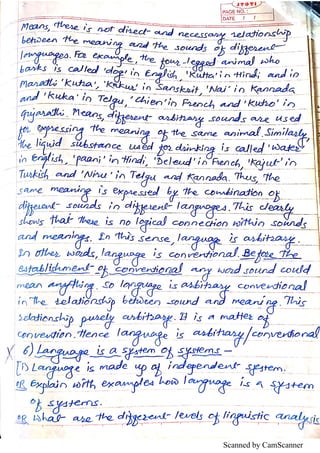 PAGE NO. :
DATE / /
Means, there is not direct and necessary relationship
between the meaning and the sounds of different
languages. For example, the four legged animal who
barks is called 'dog' in English, 'Kutta' in Hindi and in
Marathi 'Kutra', 'Kukur' in Sanskrit, 'Nai' in Kannada
and 'Kuka' in Telgu, 'Chien' in French and 'Kutro' in
Gujarathi. Means, different arbitrary sounds are used
for expressing the meaning of the same animal. Similarly,
the liquid substance used for drinking is called 'Water'
in English, 'paani' in Hindi, 'Deleud' in French, 'Kajut' in
Turkish and 'Niru' in Telgu and Kannada. Thus, the
same meaning is expressed by the combination of
different sounds in different languages. This clearly
shows that there is no logical connection within sounds
and meanings. In this sense, language is arbitrary.
In other words, language is conventional. Before the
establishment of conventional any word sound could
mean anything. So language is arbitrary conventional
in the relationship between sound and meaning. This
relationship purely arbitrary. It is a matter of
convention. Hence language is arbitrary/conventional
X 6) Language is a system of systems –
[1) Language is made up of independent system.
OR Explain with examples how language is a system
of systems.
OR What are the different levels of linguistic analysis
Scanned by CamScanner